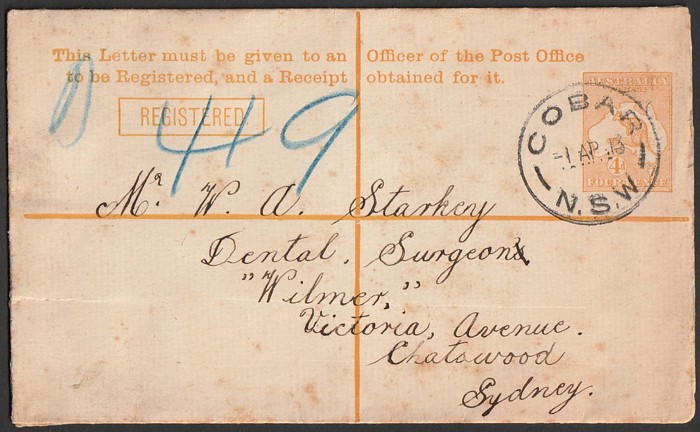 This Letter must be given to an Officer of the Post Office
to be Registered, and a Receipt obtained for it.
REGISTERED.
49
AUSTRALIA
POSTAGE
4d
FOUR PENCE
COBAR
-1 AP. 13
N.S.W
Mr. W. A. Starkey
Dental. Surgeon
"Wilmer,"
Victoria, Avenue.
Chatswood
Sydney.